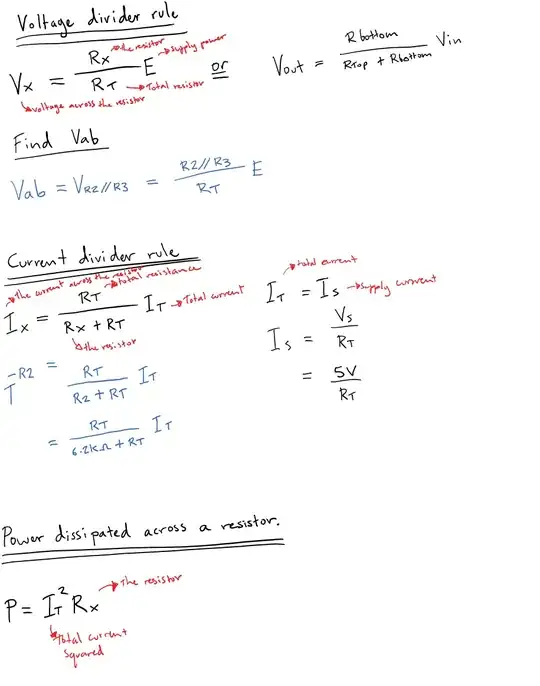 Voltage divider rule
Vx = Rx / RT E or Vout = Rbottom / RTop + Rbottom Vin
the resistor
supply power
Total resistor
voltage across the resistor
Find Vab
Vab = VR2//R3 = R2//R3 / RT E
Current divider rule
the current across the resistor
total resistance
Ix = RT / Rx + RT IT
Total current
the resistor
total current
IT = Is
supply current
Is = Vs / RT
= 5V / RT
I-R2 = RT / R2 + RT IT
= RT / 6.2kΩ + RT IT
Power dissipated across a resistor.
P = IT² Rx
The resistor
Total current
squared